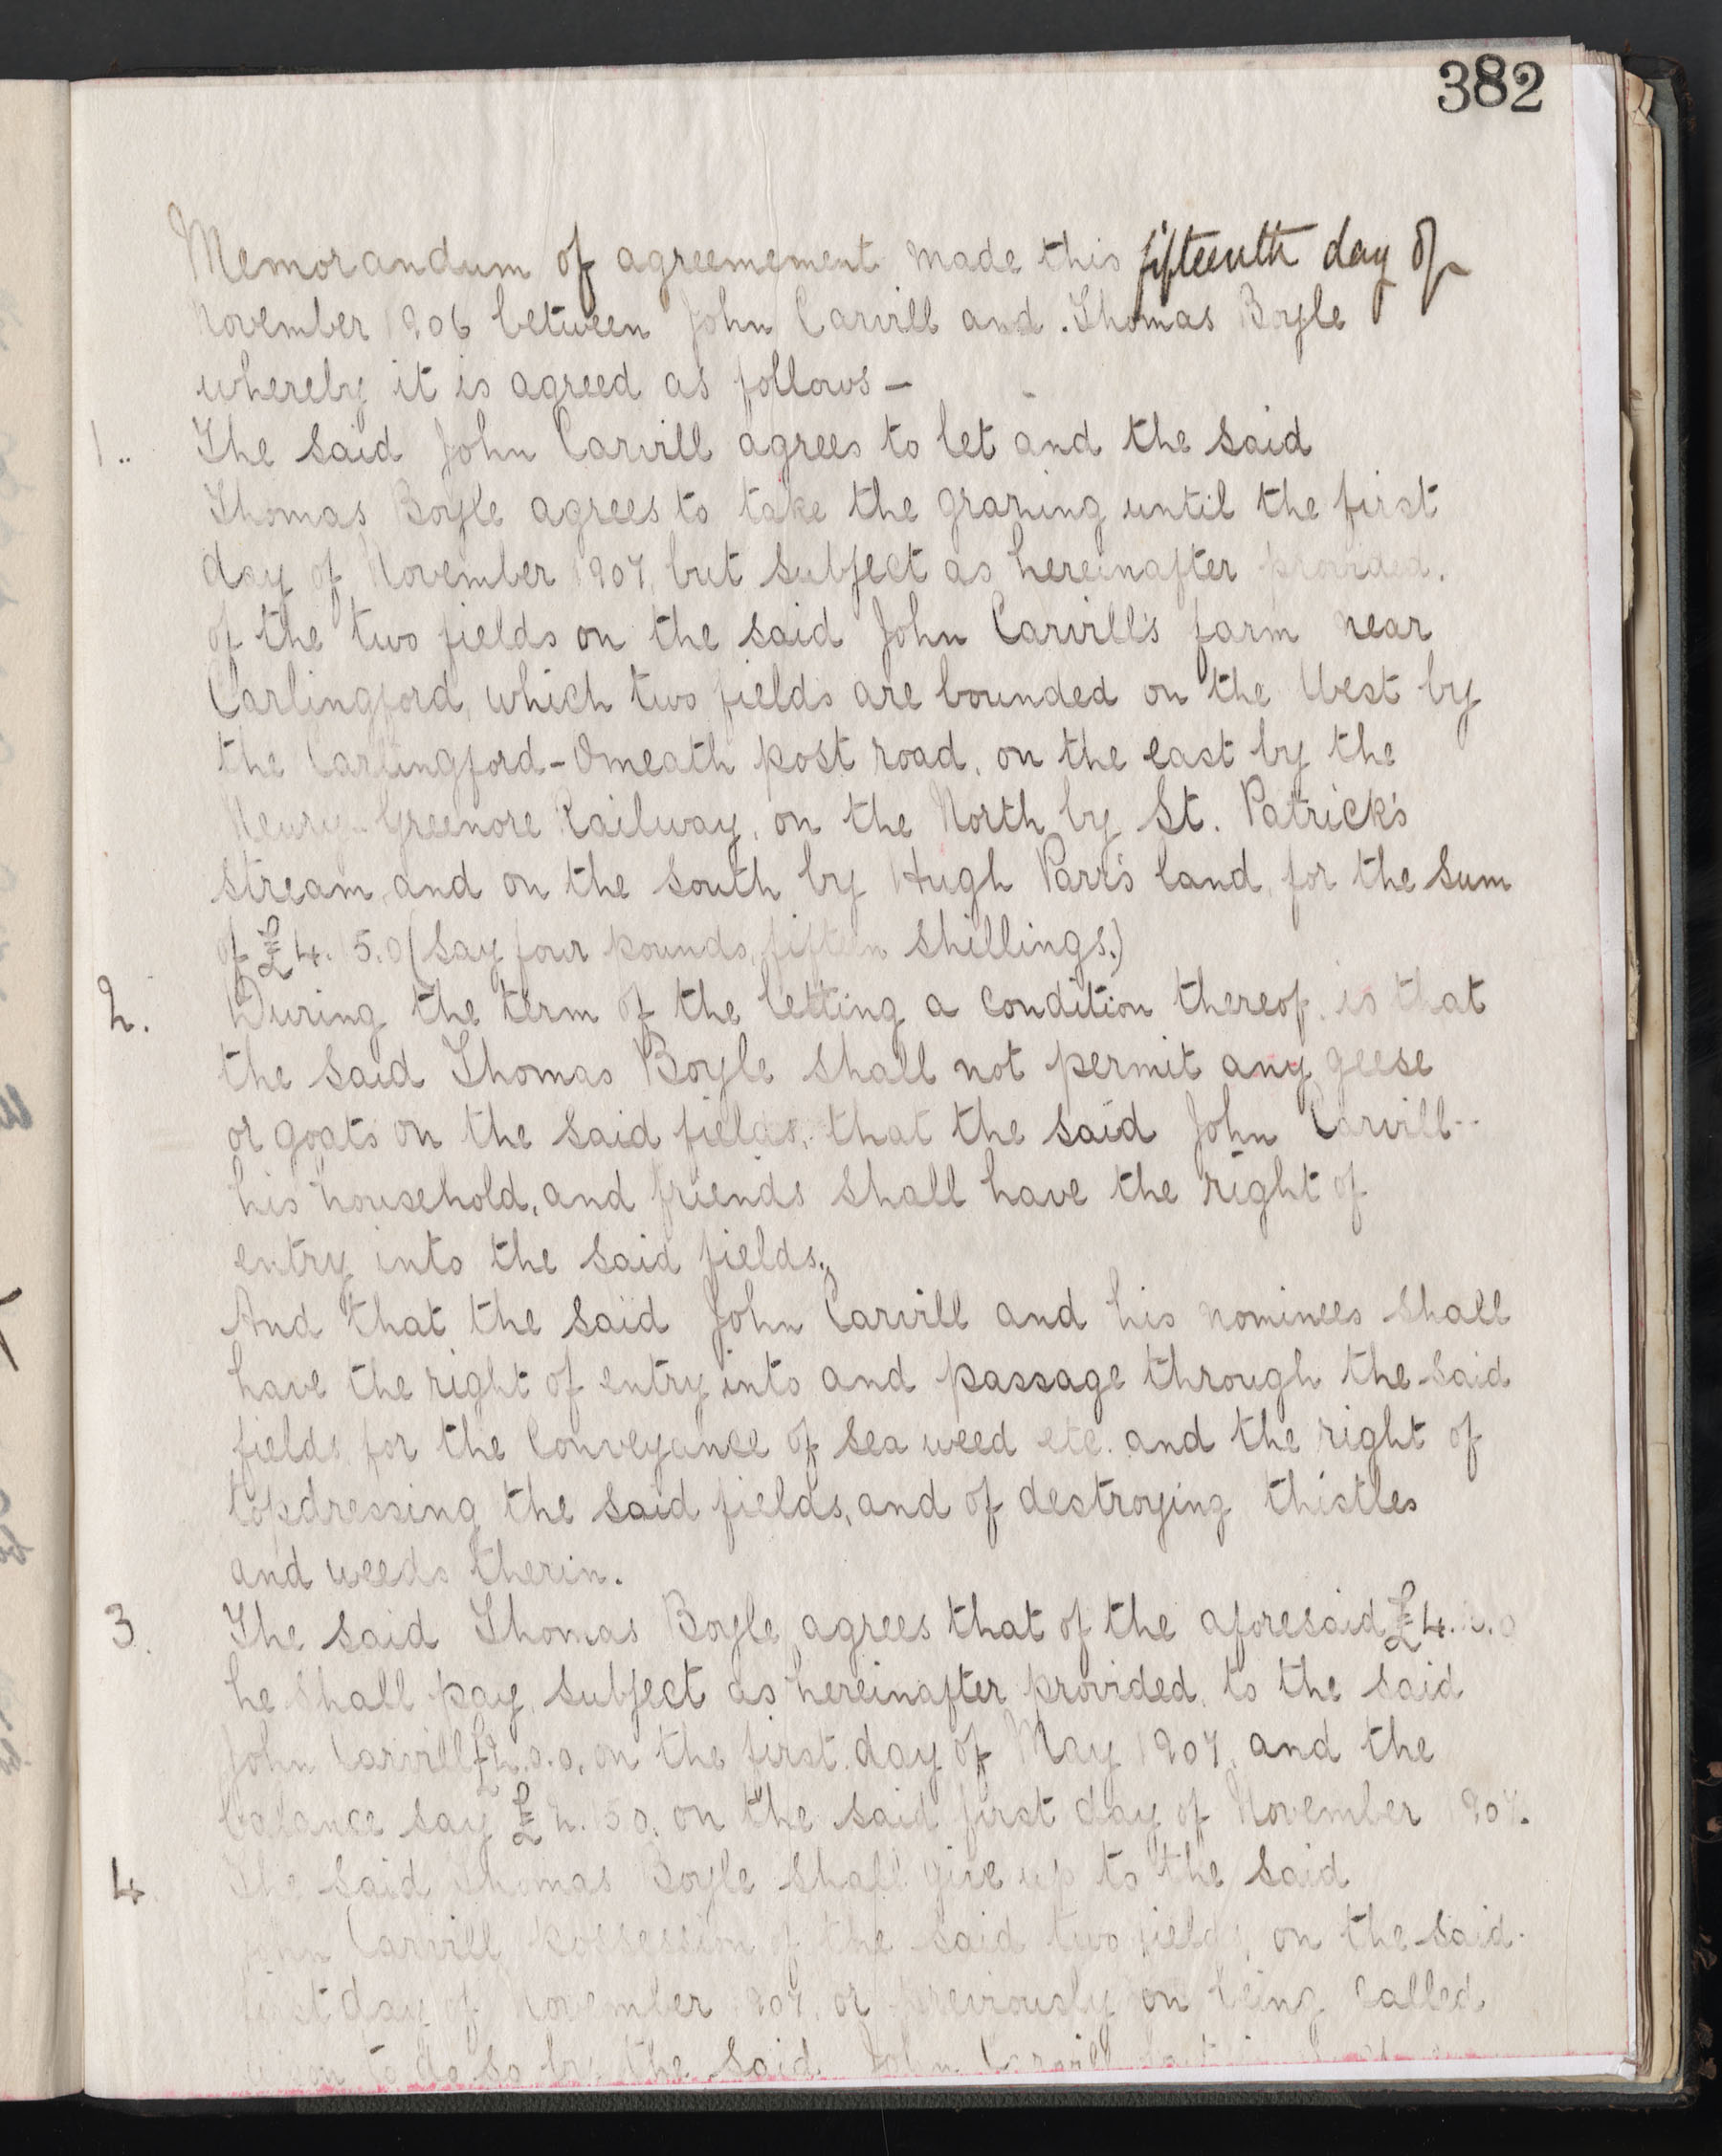 382
Memorandum of agreemement made this fifteenth day of
November 1906 between John Carvill and Thomas Boyle
whereby it is agreed as follows —
1. The said John Carvill agrees to let and the said
Thomas Boyle agrees to take the grazing until the first
day of November 1907, but subject as hereinafter provided,
of the two fields on the said John Carvill's farm near
Carlingford, which two fields are bounded on the West by
the Carlingford-Omeath post road, on the east by the
Newry-Greenore Railway, on the North by St. Patrick's
stream, and on the south by Hugh Parr's land, for the sum
of £4.15.0 (say four pounds, fifteen shillings.)
2. During the term of the letting a condition thereof, is that
the said Thomas Boyle shall not permit any geese
or goats on the said fields, that the said John Carvill
his household, and friends shall have the right of
entry into the said fields,
And that the said John Carvill and his nominees shall
have the right of entry into and passage through the said
fields for the conveyance of sea weed etc. and the right of
topdressing the said fields, and of destroying thistles
and weeds therin.
3. The said Thomas Boyle agrees that of the aforesaid £4.
he shall pay, subject as hereinafter provided, to the said
John Carvill £2.0.0, on the first day of May 1907, and the
balance say £2.15.0. on the said first day of November 1907.
4. The said Thomas Boyle shall give up to the said
John Carvill possession of the said two fields, on the said
first day of November 1907, or previously on being called
upon to do so by the said John Carvill